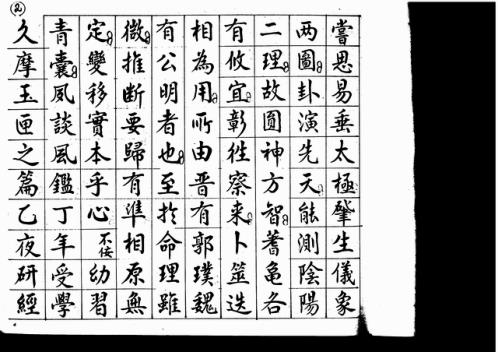 (2)
嘗思易垂太極肇生儀象
两圖卦演先天能測陰陽
二理故圆神方智蓍龜各
有攸宜彰徃察来卜筮迭
相為用所由晋有郭璞魏
有公明者也至扵命理雖
微推断要歸有準相原無
定變移實本乎心不佞幼習
青囊夙談風鑑丁年受學
久摩玉匣之篇乙夜研經